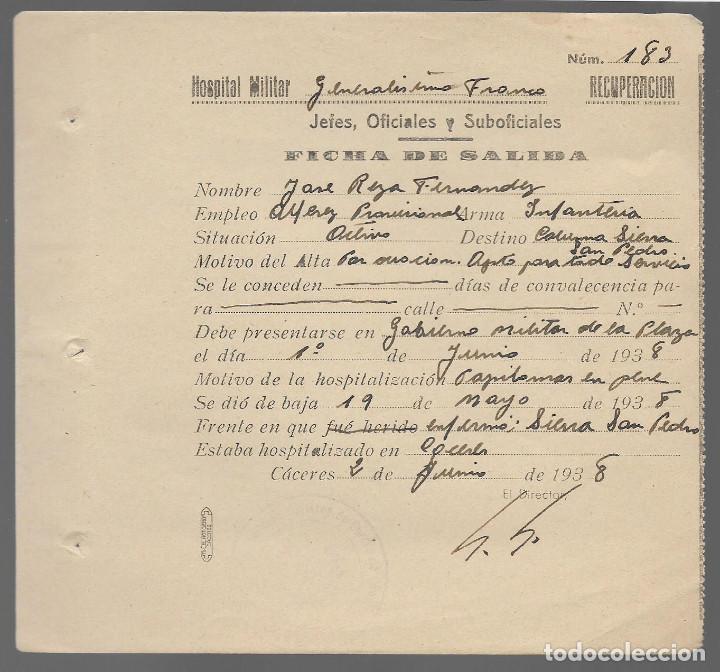 Núm. 183
Hospital Militar Generalisimo Franco RECUPERACION
Jefes, Oficiales y Suboficiales
FICHA DE SALIDA
Nombre Jose Reza Fernandez
Empleo Alferez Provisional Arma Infanteria
Situación Activo Destino Columna Sierra San Pedro
Motivo del Alta Por curacion. Apto para todo Servicio
Se le conceden días de convalecencia pa-
ra calle N.º
Debe presentarse en Gobierno militar de la Plaza
el día 1º de Junio de 1938
Motivo de la hospitalización Papilomas en pene
Se dió de baja 19 de mayo de 1938
Frente en que fué herido enfermó: Sierra San Pedro
Estaba hospitalizado en Caceres
Cáceres 2 de Junio de 1938
El Director,
todocoleccion